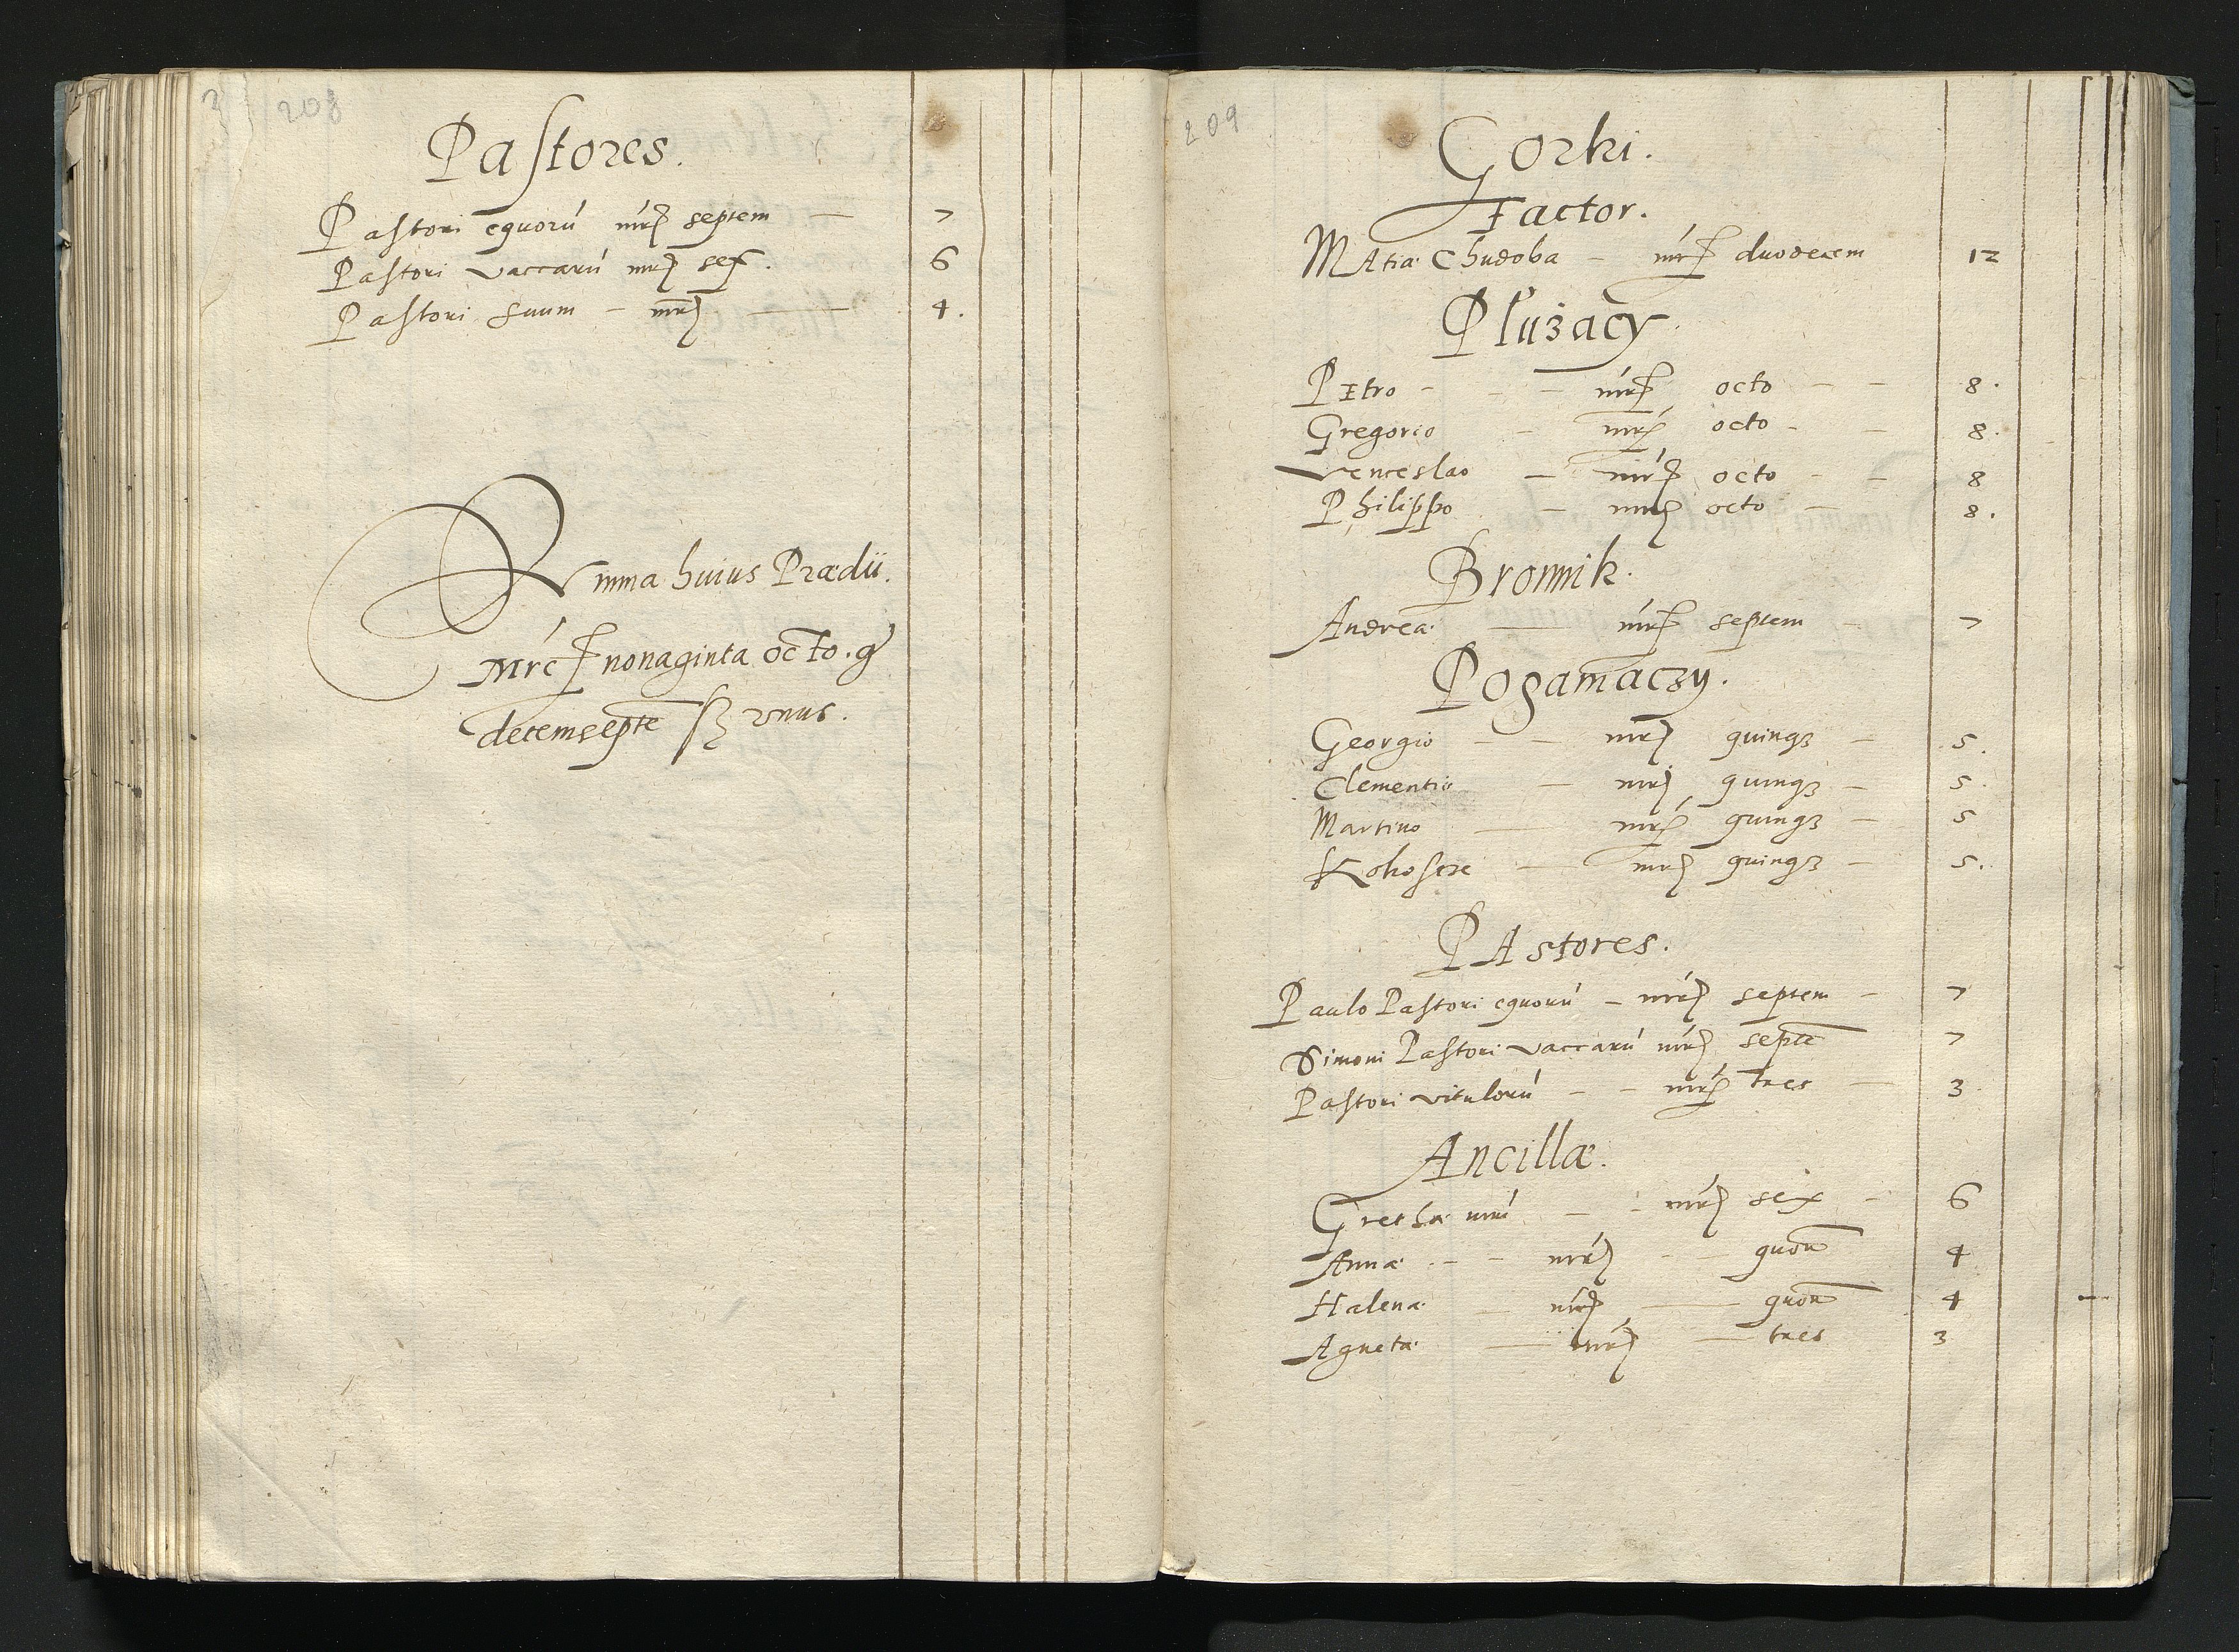 208
Pastores.
Pastori equorú mrc septem — 7
Pastori vaccarú mrc sex. 6
Pastori suum – mrc — — 4.
Summa huius Prædii.
Mrc nonaginta octo. g
decemsepte ss vnus.
209
Gorki.
Factor.
Matiæ Chudoba – mrc duodecem 12
Płużacy.
Petro – – mrc octo – – 8.
Gregorio – mrc octo – – 8.
Venceslao – mrc octo – – 8
Philippo – mrc octo – 8.
Bronnik.
Andreæ — mrc septem – 7
Poganiaczy.
Georgio – – mrc quinqȝ – 5.
Clementis – mrc quinqȝ – 5.
Martino — mrc quinqȝ – 5
mrc quinqȝ – 5.
Pastores.
Paulo Pastori equorú – mrc septem – 7
Simoni Pastori vaccarú mrc septe 7
Pastori vitulorú – – mrc tres – 3
Ancillæ.
Grethæ – mrc sex – 6
Annæ – – mrc – – 4
Halenæ – mrc — 4
Agnetæ — mrc — tres 3